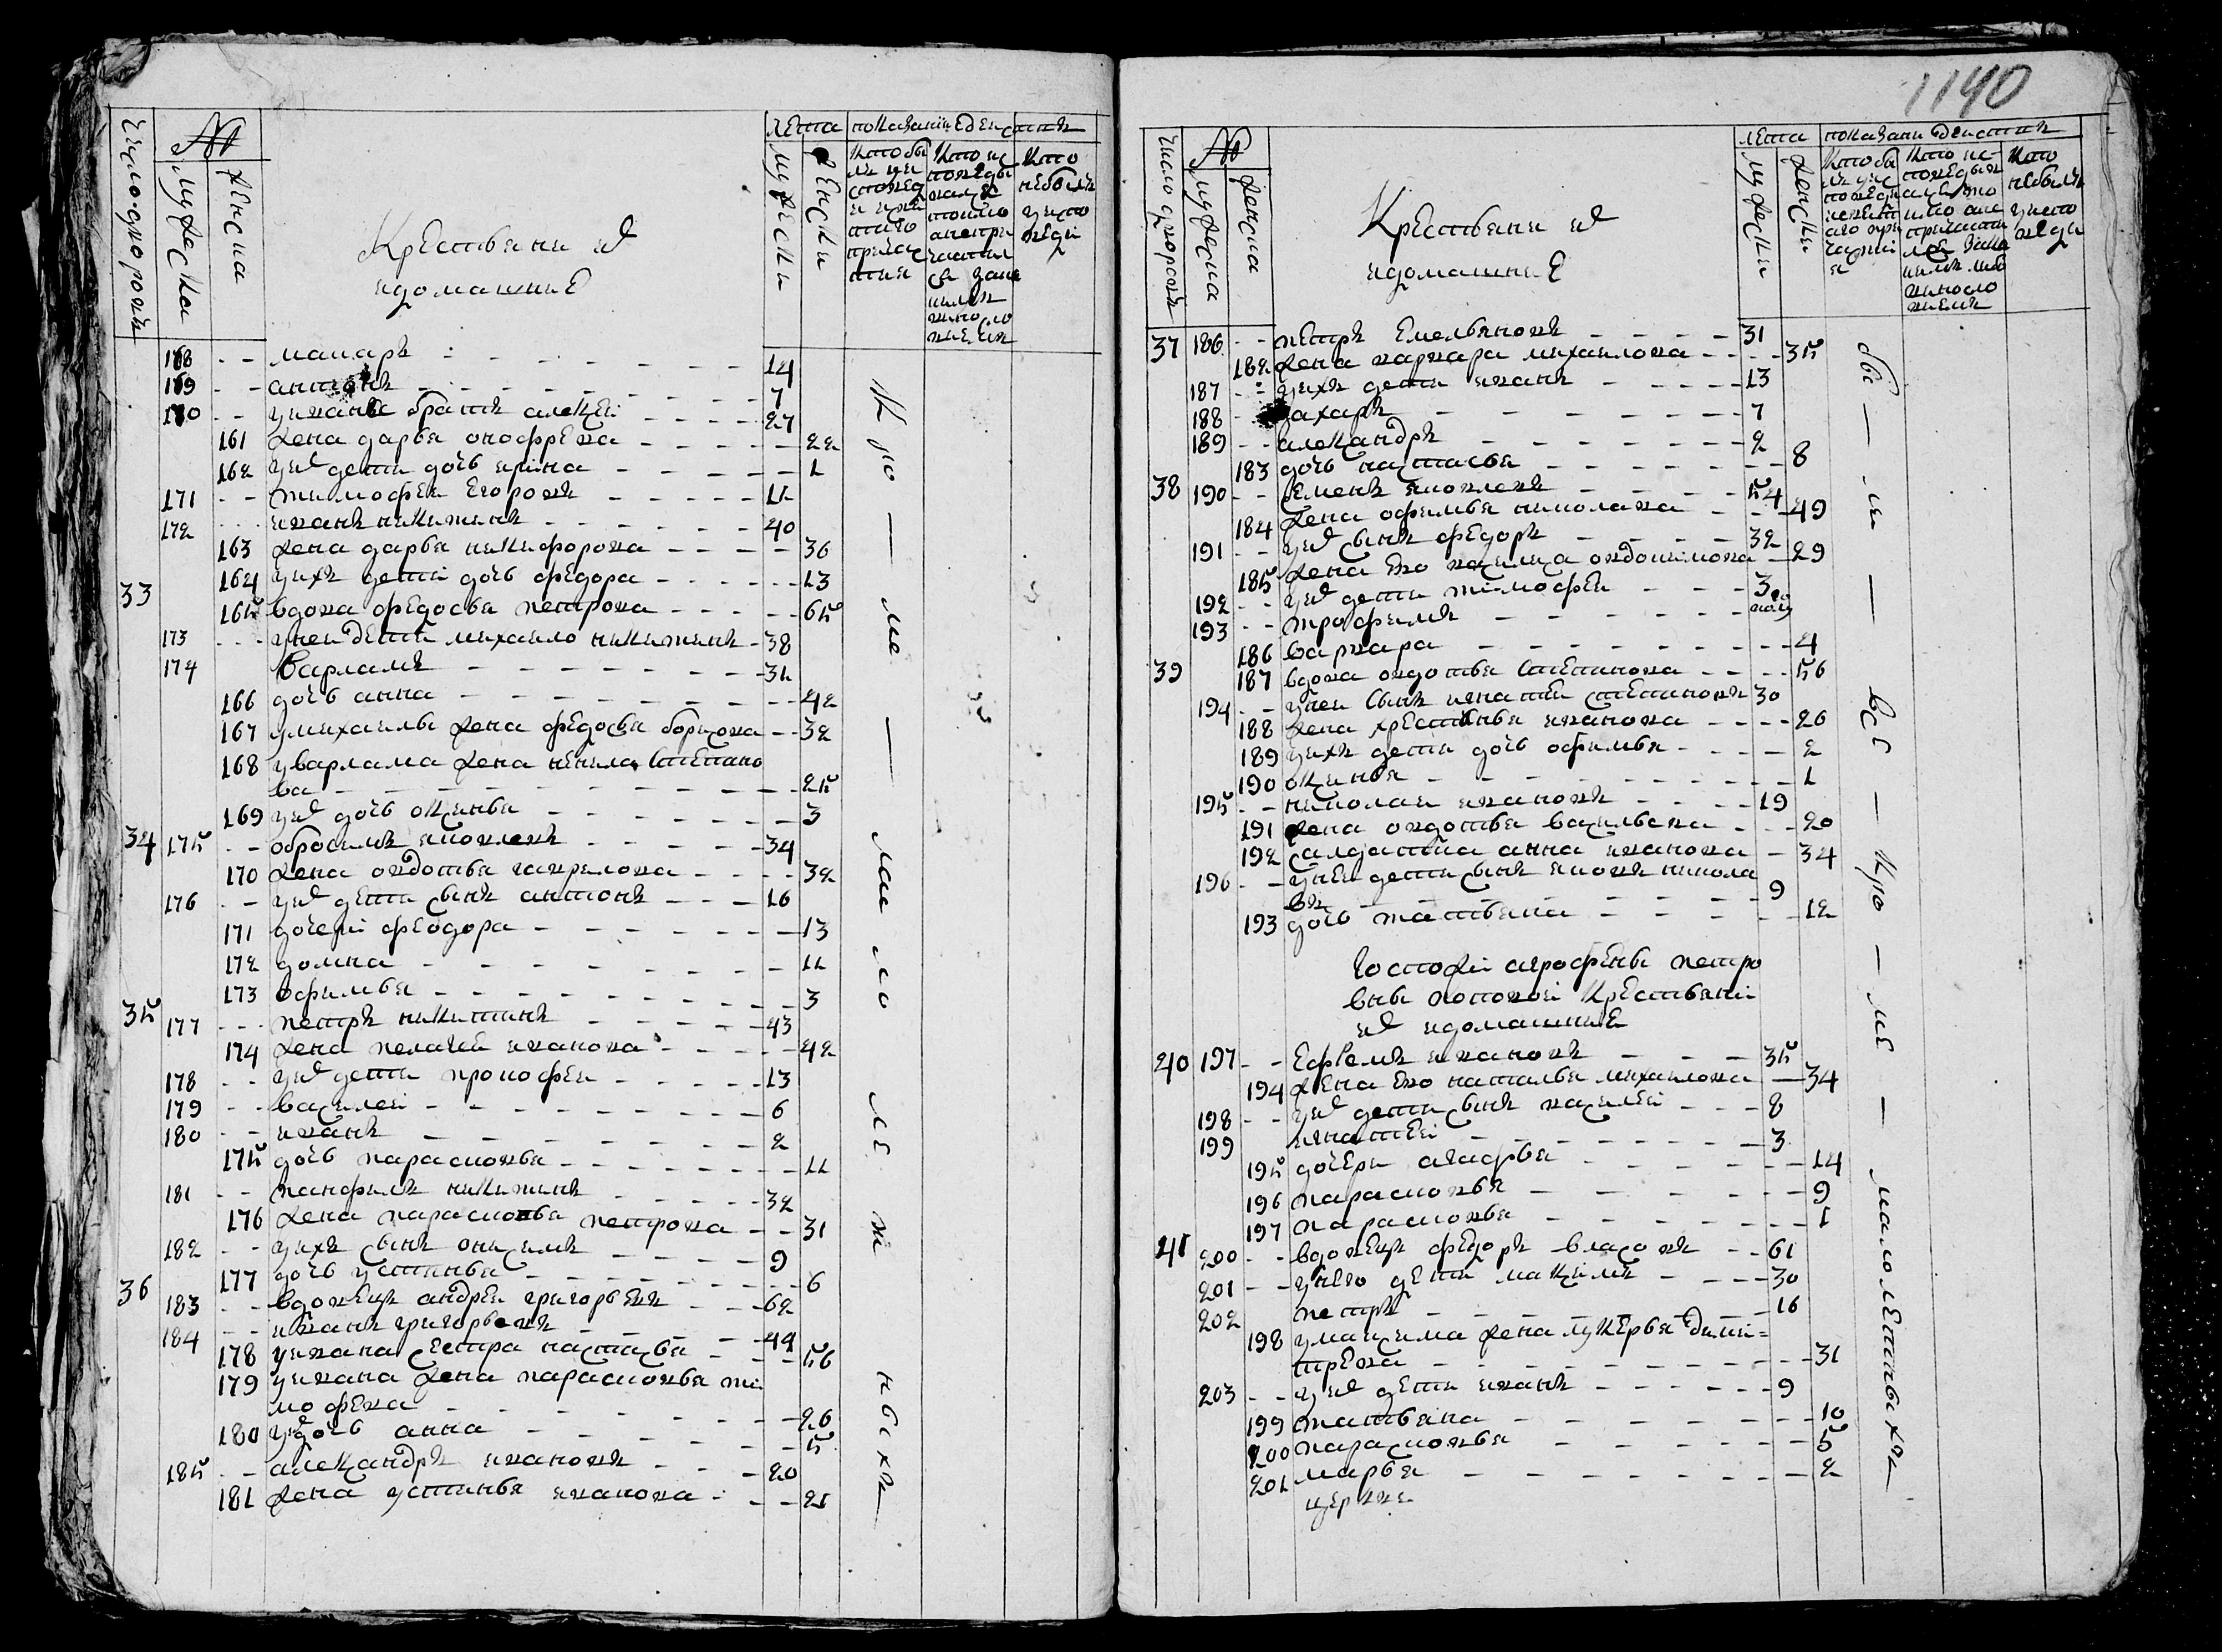 1140
число дворовъ
№
мужеска
женска
Крестьяне и
идомашние
лета
показание действъ
мужески
женски
168 - - макаръ - - - 14
169 - - антонъ - - - 7
170 - - у ивана братъ алексеи - - - 27
161 жена дарья онофрева - - - 22
162 у них дети дочь ирина - - - 1
171 - - тимофеи егоровъ - - - 11
172 - - иванъ никитинъ - - - 40
163 жена дарья никифорова - - - 36
164 у ихъ дети дочь федора - - - 13
33
165 вдова федосья петрова - - - 65
173 - - у неи дети михаило никитинъ - 38
174 варламъ - - - 31
166 дочь анна - - - 42
167 у михаилы жена федосья борисова - - 32
168 у варлама жена ненила степано
ва - - - 25
169 у них дочь оксинья - - - 3
34 175 - - обросимъ яковлевъ - - - 34
170 жена овдотья гаврилова - - - 32
176 - - у них дети сынъ антонъ - - - 16
171 дочери феодора - - - 13
172 домна - - - 11
173 офимья - - - 3
35 177 - - петръ никитинъ - - - 43
174 жена пелагея иванова - - - 42
178 - - у них дети прокофеи - - - 13
179 - - василеи - - - 6
180 - - иванъ - - - 2
175 дочь парасковья - - - 11
181 - - панфилъ никитинъ - - - 32
176 жена парасковья петрова - - 31
182 - - у ихъ сынъ онисимъ - - - 9
177 дочь устинья - - - 6
36 183 - - вдовецъ андреи григорьевъ - - - 62
184 - - иванъ григорьевъ - - - 44
178 у ивана сестра настасья - - - 56
179 у ивана жена парасковья ти
мофева - - - 26
180 у них дочь анна - - - 5
185 - - александръ ивановъ - - - 20
181 жена устинья иванова - - - 21
кро — ме — мало ле т нь ихъ
число дворовъ
№
мужеска
женска
Крестьяне и
идомашние
лета
показание действъ
мужески
женски
37 186 - - петръ емельяновъ - - - 31
182 жена варвара михаилова - - - 35
187 - - у ихъ дети иванъ - - - 13
188 - - захаръ - - - 7
189 - - александръ - - - 2
183 дочь настасья - - - 8
38 190 - - семенъ яковлевъ - - - 54
184 жена офимья николава - - - 49
191 - - у них сынъ федоръ - - - 32
185 жена ево василиса овдокимова - 29
192 - - у них дети тимофеи - - - 3
193 - - трофимъ - - - полу
186 варвара - - - 4
39 187 вдова овдотья степанова - - - 56
194 - - у неи сынъ игнатеи степановъ 30
188 жена хрестинья иванова - - - 26
189 у ихъ дети дочь офимья - - - 2
190 оксинья - - - 1
195 - - николаи ивановъ - - - 19
191 жена овдотья васильева - - - 20
192 салдатка анна иванова - 34
196 - - у неи дети сынъ яковъ никола
въ - - - 9
193 дочь татьяна - - - 12
госпожи агрофены петро
вны поповои крестьяни
и идомашние
40 197 - - ефремъ ивановъ - - - 35
194 жена ево наталья михаилова - 34
198 - - у них дети сынъ василеи - - - 8
199 игнатеи - - - 3
195 дочери агафья - - - 14
196 парасковья - - - 9
197 парасковья - - - 1
41 200 - - вдовецъ федоръ власовъ - - 61
201 - - у него дети максимъ - - - 30
202 петръ - - - 16
198 у максима жена лукерья дими=
трева - - - 31
203 - - у них дети иванъ - - - 9
199 татьяна - - - 10
200 парасковья - - - 5
201 марья - - - 2
церкве
бы — ли — все — кро — ме — малолетныхъ